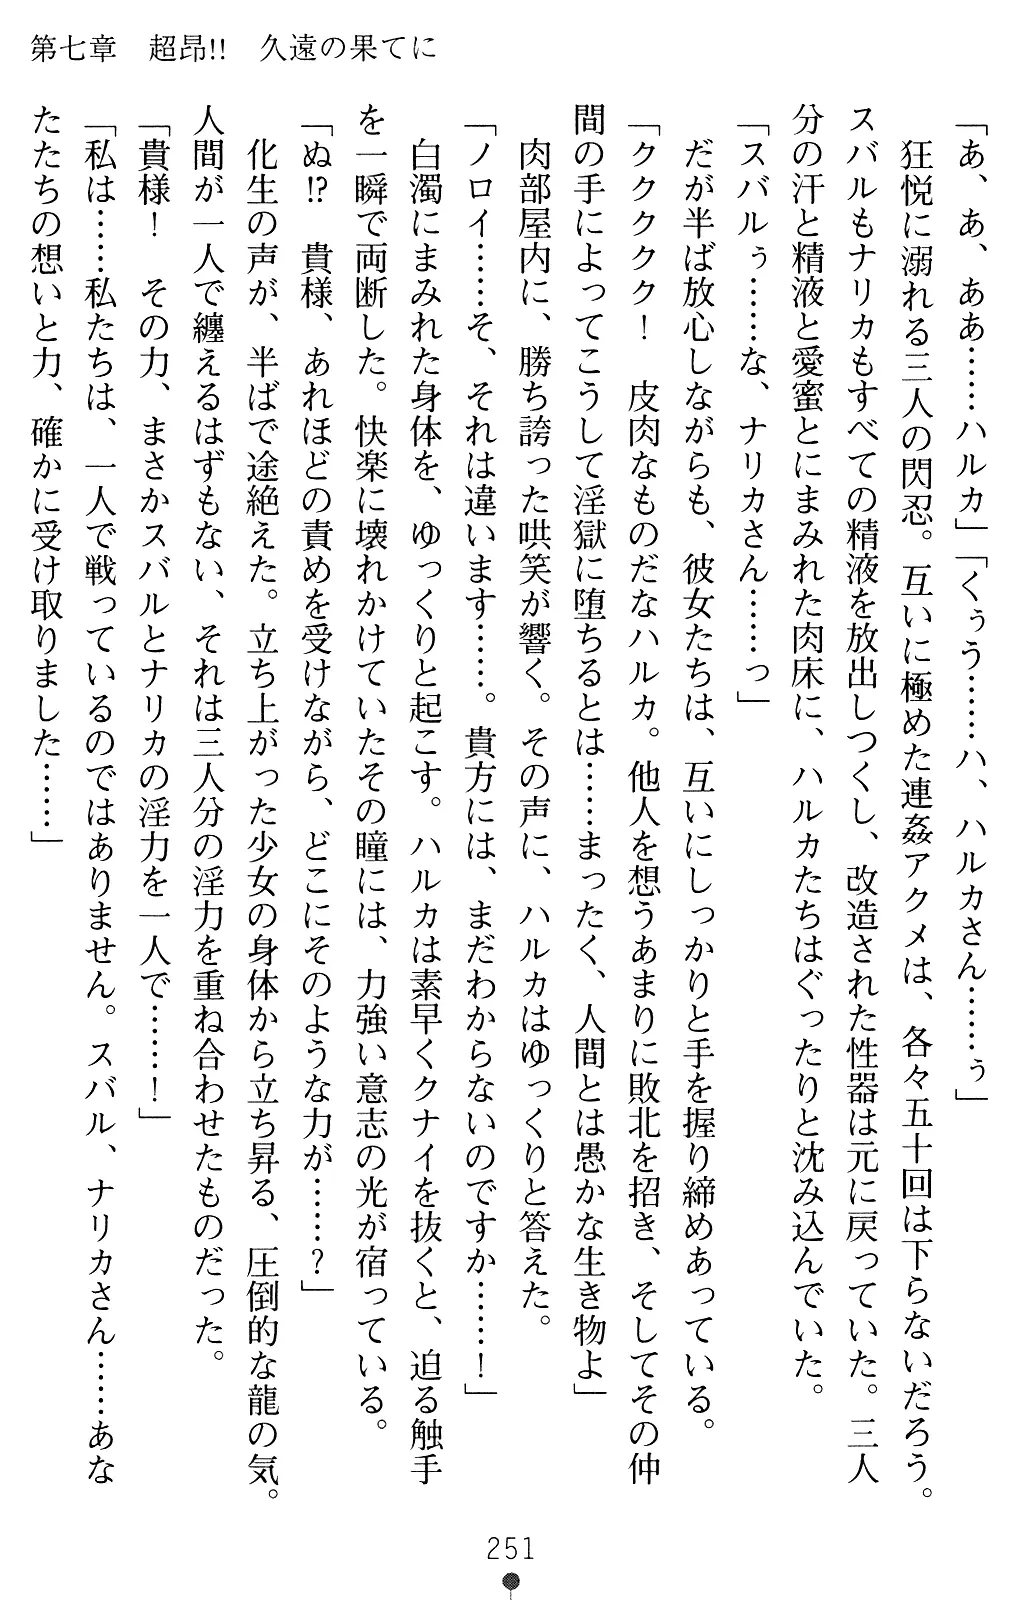 第七章　超昂!!　久遠の果てに
「あ、あ、ああ……ハルカ」「くぅう……ハ、ハルカさん……ぅ」
狂悦に溺れる三人の閃忍。互いに極めた連姦アクメは、各々五十回は下らないだろう。
スバルもナリカもすべての精液を放出しつくし、改造された性器は元に戻っていた。三人
分の汗と精液と愛蜜とにまみれた肉床に、ハルカたちはぐったりと沈み込んでいた。
「スバルぅ……な、ナリカさん……っ」
だが半ば放心しながらも、彼女たちは、互いにしっかりと手を握り締めあっている。
「クククク！　皮肉なものだなハルカ。他人を想うあまりに敗北を招き、そしてその仲
間の手によってこうして淫獄に堕ちるとは……まったく、人間とは愚かな生き物よ」
肉部屋内に、勝ち誇った哄笑が響く。その声に、ハルカはゆっくりと答えた。
「ノロイ……そ、それは違います……。貴方には、まだわからないのですか……！」
白濁にまみれた身体を、ゆっくりと起こす。ハルカは素早くクナイを抜くと、迫る触手
を一瞬で両断した。快楽に壊れかけていたその瞳には、力強い意志の光が宿っている。
「ぬ!?　貴様、あれほどの責めを受けながら、どこにそのような力が……？」
化生の声が、半ばで途絶えた。立ち上がった少女の身体から立ち昇る、圧倒的な龍の気。
人間が一人で纏えるはずもない、それは三人分の淫力を重ね合わせたものだった。
「貴様！　その力、まさかスバルとナリカの淫力を一人で……！」
「私は……私たちは、一人で戦っているのではありません。スバル、ナリカさん……あな
たたちの想いと力、確かに受け取りました……」
251